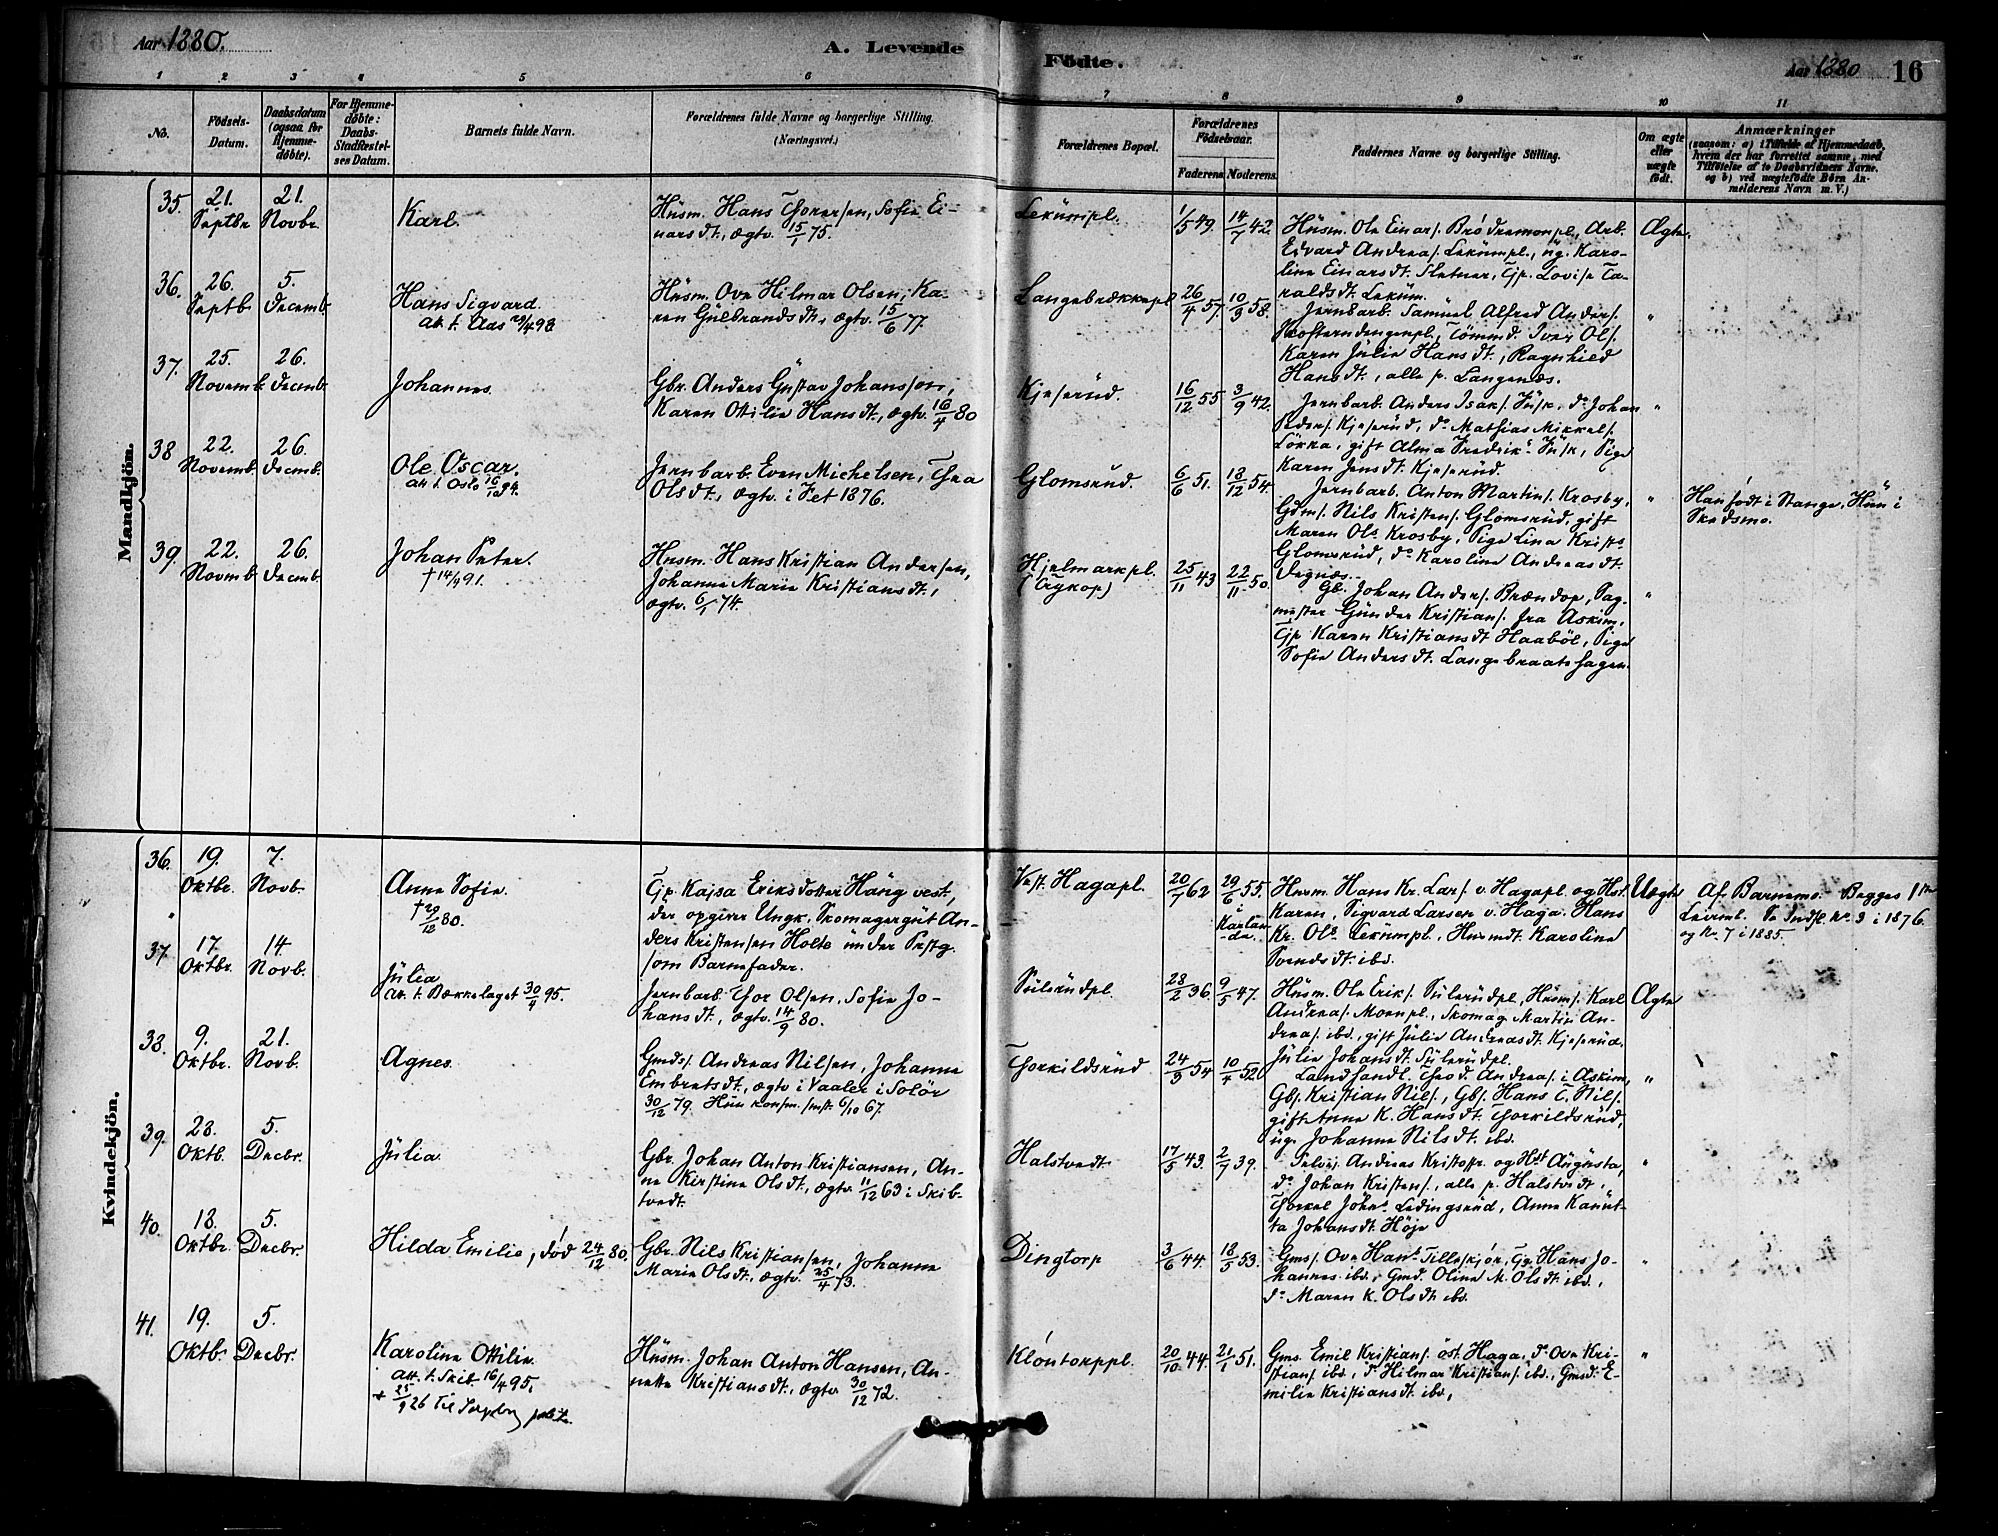 Aar 1880.
A. Levende
Födte.
Aar 1880
16
1 2 3 4 5 6
7 8 9 10 11
No.
Födsels-
Datum.
Daabsdatum
(ogsaa for
Hjemme-
döbte).
For Hjemme-
döbte:
Daabs-
Stadfæstel-
ses Datum.
Barnets fulde Navn.
Forældrenes fulde Navne og borgerlige Stilling.
(Næringsvei.)
Forældrenes Bopæl.
Forældrenes
Födselsaar.
Faderens
Moderens.
Faddernes Navne og borgerlige Stilling.
Om ægte
eller
uægte
födt.
Anmærkninger
(saasom: a) i Tilfælde af Hjemmedaab,
hvem der har forrettet samme, med
Tilföielse af to Daabsvidners Navne.
og b) ved uægtefödte Börn An-
melderens Navn m. V.)
Mandkjön.
35. 21. Septbr. 21. Novbr.
Karl.
Husm. Hans Thoresen, Sofie Ei-
narsdt., ægtv. 15/1 75.
Lekumpl.
1/5 49. 14/7 42.
Husm. Ole Einars. Brödremonpl., Arb.
Edvard Andreas. Lekumpl., ug. Karo-
line Einarsdt. Sletner, Tjp. Lovise Ta-
raldsdt. Lekum.
Ægte.
36. 26. Septb. 5. Decemb.
Hans Sigvard.
att. t. Aas 29/4 98
Husm. Ove Hilmar Olsen, Ka-
ren Gulbrandsdt., ægtv. 15/6 77.
Langebrækkepl.
26/4 57. 10/9 58.
Jernbarb. Samuel Alfred Anders.
Tömmd. Iver Ols.
Karen Julie Hansdt., Ragnhild
Hansdt., alle p. Langenæs.
"
37. 25. Novemb. 26. Decmb.
Johannes.
Gbr. Anders Gustav Johansson,
Karen Otilie Hansdt., ægtv. 16/4 80
Kjeserud.
16/12 55 3/9 42.
Jernbarb. Anders Isaks. Husk, do Johan
Peders. Kjeserud, do Mathias Mikkels.
Lökka, gift Alma Fredriks Husk, Pige
Karen Jensdt. Kjeserud.
"
38 22. Novemb. 26. Decmb.
Ole Oscar.
att. t. Oslo 16/10 94.
Jernbarb. Even Michelsen, Thea
Olsdt., ægtv. i Fet 1876.
Glomsrud.
6/6 51. 18/12 54.
Jernbarb. Anton Martins. Krosby,
Gdms. Nils Kristens. Glomsrud, gift
Maren Ols. Krosby, Pige Lina Krists
Glomsrud, do Karoline Andreasdt.
Degnæs.
"
Han födt i Stange, Hun i
Skedsmo.
39. 22. Novmb. 26. Decmb.
Johan Peter.
† 14/9 91.
Husm. Hans Kristian Andersen,
Johanne Marie Kristiansdt.,
ægtv. 6/1 74.
Hjelmarkpl.
(Trykop)
25/11 43 22/11 50.
Gb. Johan Anders. Brændop, Sag-
mester Gunder Kristians. fra Askim,
Tjp Karen Kristiansdt Haaböl, Pige
Sofie Andersdt. Langebraatehagen.
"
Kvindekjön.
36. 19. Oktbr. 7. Novb.
Anne Sofie.
† 29/12 80.
Tjp. Kajsa Eriksdotter Haug vest,
der opgiver Ungk. Skomagergut An-
ders Kristensen Holte under Prestg.
som Barnefader.
Vest. Hagapl.
20/7 62 29/6 55.
i Karlan-
da.
Husm. Hans Kr. Lars. v. Hagapl. og Hst.
Karen, Sigvard Larsen v. Haga. Hans
Kr. Ols Lekumpl., Husmdt. Karoline
Svendsdt. ibd.
Uægte
Af Barnemo. Begges 1ste
Leierml. Se Indfl. No. 3 i 1876.
og No. 7 i 1885.
37. 17. Oktbr. 14. Novb.
Julie
att. t. Bækkelaget 30/4 95.
Jernbarb. Thor Olsen, Sofie Jo-
hansdt., ægtv. 14/9 80.
Sulerudpl.
28/2 36. 9/5 47.
Husm. Ole Eriks. Sulerudpl, Husms. Karl
Andreas. Moenpl., Skomag. Martin An-
dreas. ibd., gift Julie Andreasdt. Kjeserud.
Julie Johansdt. Sulerudpl.
Ægte
38. 9. Oktbr. 21. Novb.
Agnes.
Gmds. Andreas Nilsen, Johanne
Embretsdt., ægtv. i Vaaler i Solör
30/12 79. Hun konfm. smst. 6/10 67.
Thorkildsrud
24/9 54 10/4 52.
Landhandl. Theod. Andreas. i Askim,
Gbs. Kristian Nils., Gbs. Hans T. Nils.
gift Anne K. Hansdt. Thorkildsrud,
ug. Johanne Nilsdt. ibd.
"
39. 28. Oktb. 5. Decbr.
Julie
Gbr. Johan Anton Kristiansen, An-
ne Kirstine Olsdt., ægtv. 11/12 63 i Skib-
tvedt.
Halstvedt.
17/5 43. 2/7 39.
Selvei. Andreas Kristoffs. og Hst Augusta,
do Johan Kristens., alle p. Halstvedt,
Thorkel Johns. Ledingsrud, Anne Kanut-
ta Johansdt. Höje
"
40. 18. Oktbr. 5. Decbr.
Hilda Emilie, död 24/12 80.
Gbr. Nils Kristiansen, Johanne
Marie Olsdt., ægtv. 25/4 73.
Dingtorp
3/6 44. 18/5 53.
Gms. Ove Hans. Tilleskjör, Tg. Hans Jo-
hannes. ibd., Gmd. Oline M. Olsdt. ibd.,
do Maren K. Olsdt. ibd.
"
41. 19. Oktbr. 5. Decbr.
Karoline Otilie.
att. t. Skib. 16/4 95.
+ 25/9 26 til Sarpsborg
Husm. Johan Anton Hansen, An-
nette Kristiansdt., ægtv. 30/12 72.
Klontorppl.
20/10 44. 21/1 51.
Gms. Emil Kristians. öst. Haga, do Ove Kri-
stians. ibd., do Hilmar Kristians. ibd., Gmsdt. E-
milie Kristiansdt. ibd.,
"